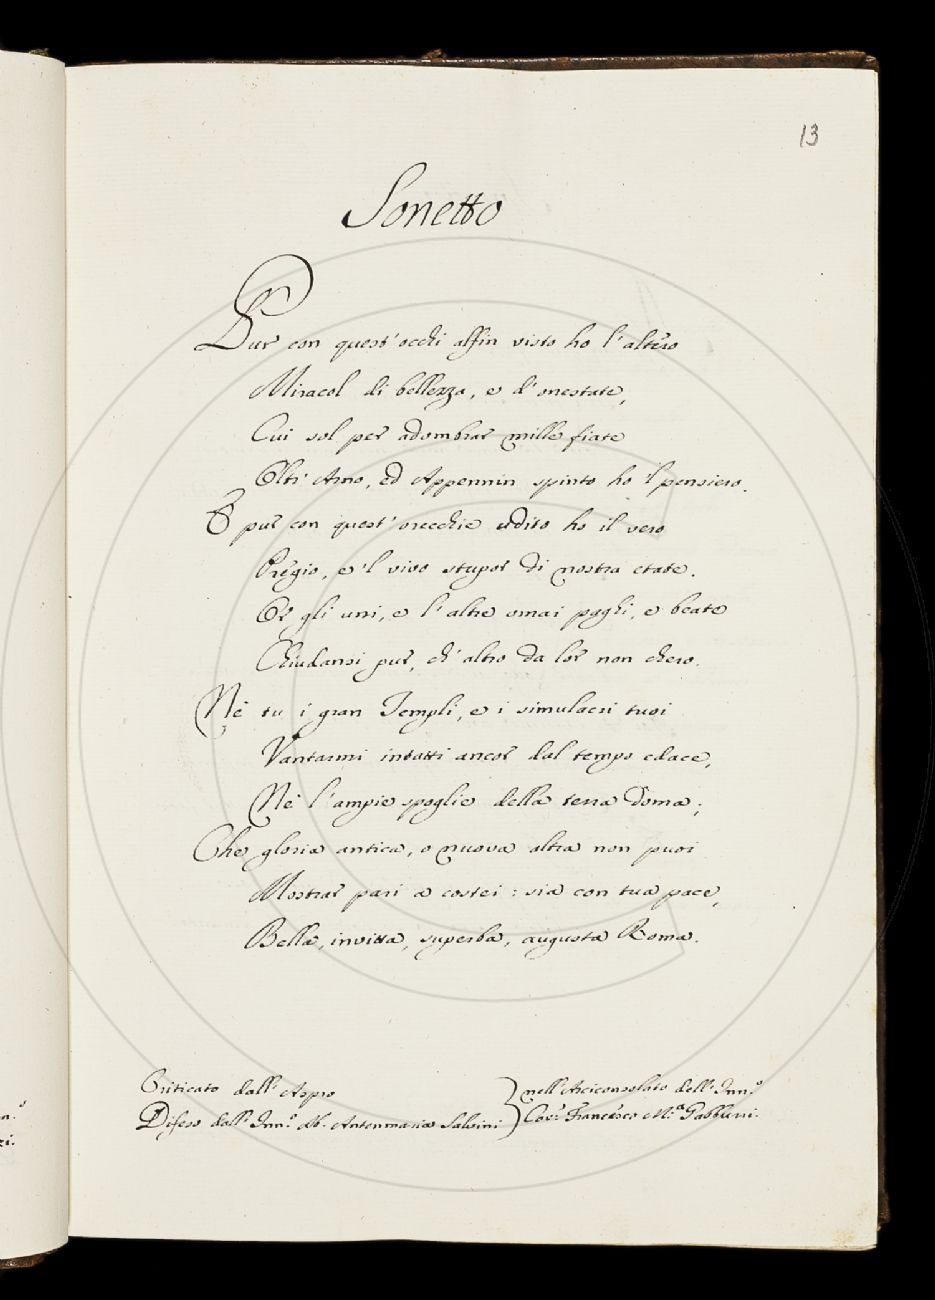 13
Sonetto
Pur con quest' occhi alfin visto ho l' altero
Miracol di bellezza, e d' onestate,
Cui sol per adombrar mille fiate
Oltr' Arno, ed Appennin spinto ho il pensiero.
E pur con quest' orecchie udito ho il vero
Pregio, e 'l vivo stupor di nostra etate.
Or gli uni, e l' altre omai paghi, e beate
Chiudansi pur, ch' altro da lor non chero.
Nè tu i gran Templi, e i simulacri tuoi
Vantarmi intatti ancor dal tempo edace,
Nè l' ampie spoglie della terra doma;
Che gloria antica, o nuova altra non puoi
Mostrar pari a costei: sia con tua pace,
Bella, invitta, superba, augusta Roma.
Criticato dall' Aspro
Difeso dall' Inn.º Ab. Antonmaria Salvini
nell' Arciconsolato dell' Inn.º
Cav.r Francesco M.a Gabburri.